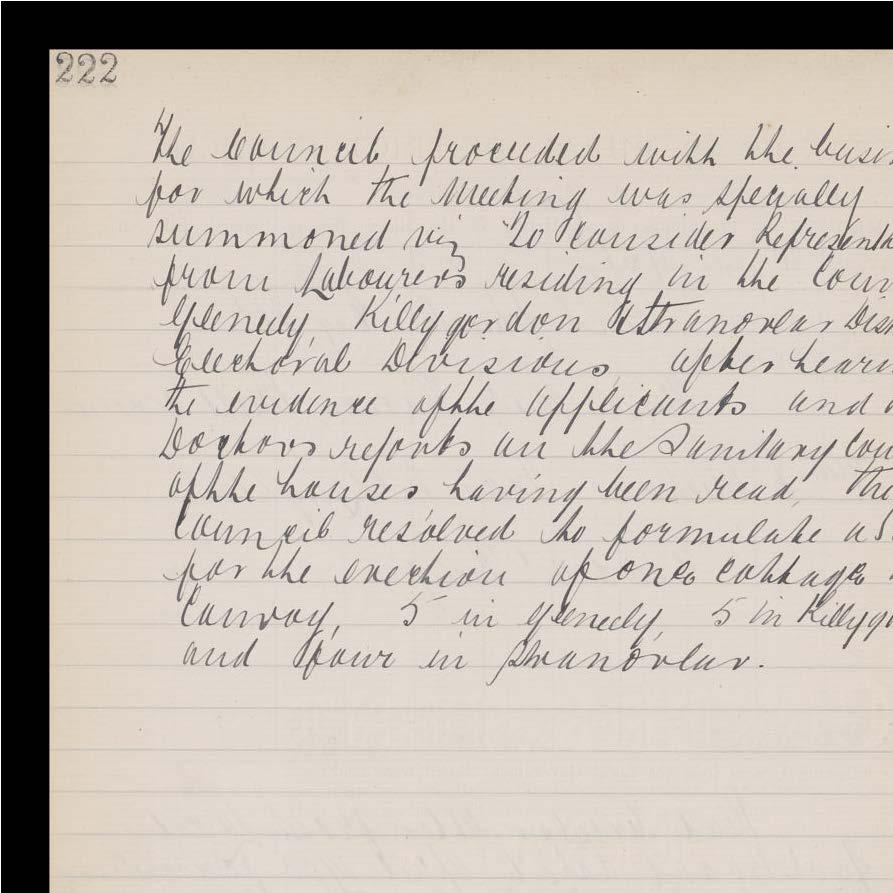 222
The Council proceeded with the busin
for which the Meeting was specially
summoned viz "To consider Representa
from Labourers residing in the
Glenedy Killygordon & Stranorlar Dist
Electoral Divisions, after hearin
the evidence of the applicants and
Doctors reports on the Sanitary Con
of the houses having been read, the
Council resolved to formulate a S
for the erection of one cottage
Convoy, 5 in Glenedy, 5 in Killygo
and four in Stranorlar.